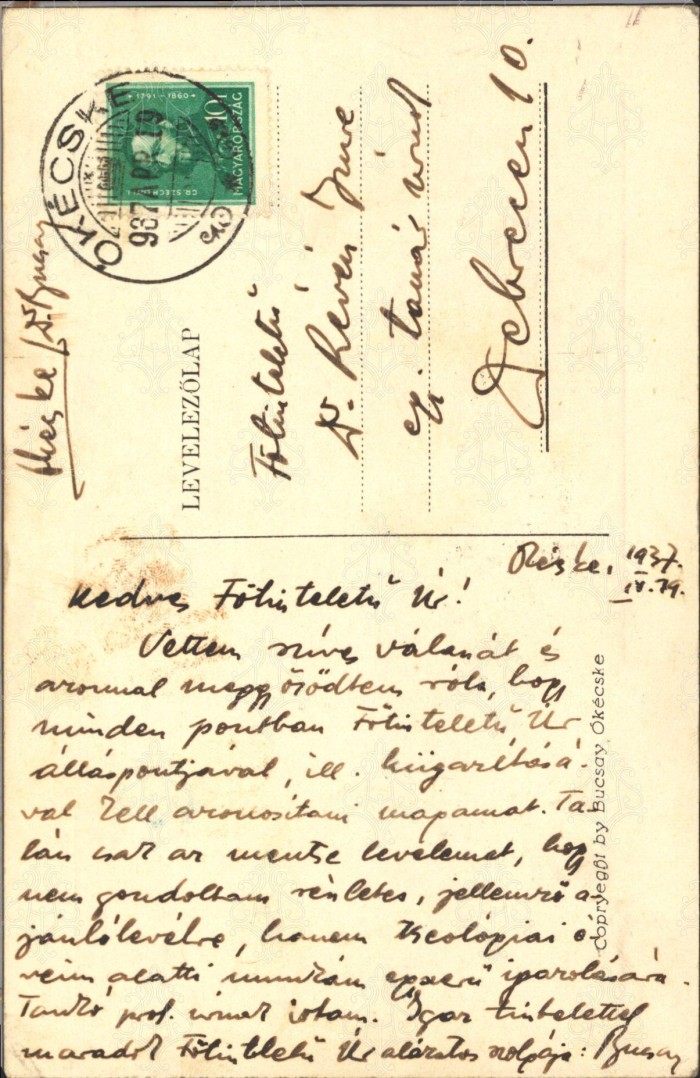 ÓKÉCSKE
937 APR 19
10f
MAGYARORSZÁG
GR. SZÉCHENYI
1791-1860
Kécske / Dr Bucsay
LEVELEZŐLAP
Főtiszteletű
Dr. Révész Imre
egy. tanár úrnak
Debrecen 10.
Kécske, 1937.
IV. 19.
Kedves Főtiszteletű Úr!
Vettem szíves válaszát és
azonnal meggyőződtem róla, hogy
minden pontban Főtiszteletű Úr
álláspontjával, ill. kiigazításá-
val kell azonosítani magamat. Ta-
lán csak az mentse levelemet, hogy
nem gondoltam részletes, jellemző a-
jánlólevélre, hanem theológiai é-
veim alatti munkám egyszerű igazolására.
Tankó prof. úrnak írtam. Igaz tisztelettel
maradok Főtiszteletű Úr alázatos szolgája: Bucsay
Copryegőt by Bucsay Ókécske